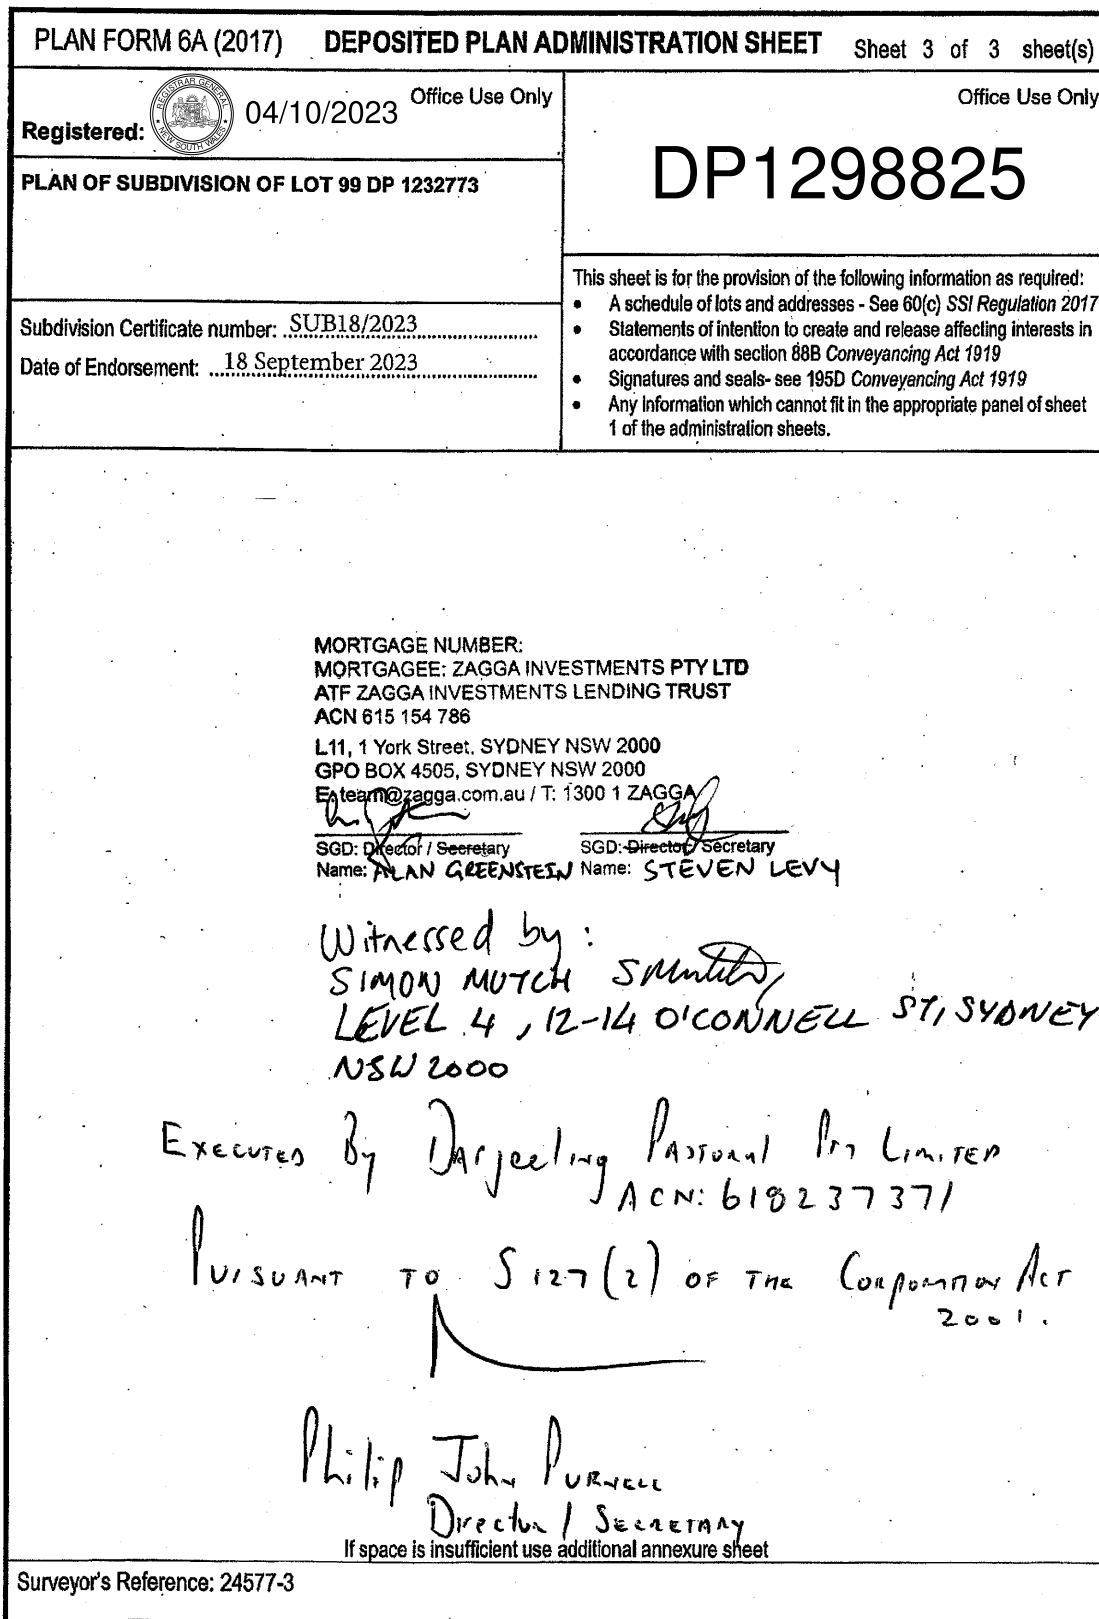 PLAN FORM 6A (2017) DEPOSITED PLAN ADMINISTRATION SHEET Sheet 3 of 3 sheet(s)
Office Use Only
Registered: 04/10/2023
REGISTRAR GENERAL
NEW SOUTH WALES
Office Use Only
DP1298825
PLAN OF SUBDIVISION OF LOT 99 DP 1232773
Subdivision Certificate number: SUB18/2023
Date of Endorsement: 18 September 2023
This sheet is for the provision of the following information as required:
• A schedule of lots and addresses - See 60(c) SSI Regulation 2017
• Statements of intention to create and release affecting interests in
accordance with section 88B Conveyancing Act 1919
• Signatures and seals- see 195D Conveyancing Act 1919
• Any information which cannot fit in the appropriate panel of sheet
1 of the administration sheets.
MORTGAGE NUMBER:
MORTGAGEE: ZAGGA INVESTMENTS PTY LTD
ATF ZAGGA INVESTMENTS LENDING TRUST
ACN 615 154 786
L11, 1 York Street, SYDNEY NSW 2000
GPO BOX 4505, SYDNEY NSW 2000
E: team@zagga.com.au / T: 1300 1 ZAGGA
SGD: Director / Secretary SGD: Director/ Secretary
Name: ALAN GREENSTEIN Name: STEVEN LEVY
Witnessed by:
SIMON MUTCH
LEVEL 4, 12-14 O'CONNELL ST, SYDNEY
NSW 2000
EXECUTED By DARJEELING PASTORAL PTY LIMITED
ACN: 618237371
PURSUANT TO S127(2) OF THE CORPORATION ACT
2001.
Philip John PURNELL
Director / SECRETARY
If space is insufficient use additional annexure sheet
Surveyor's Reference: 24577-3